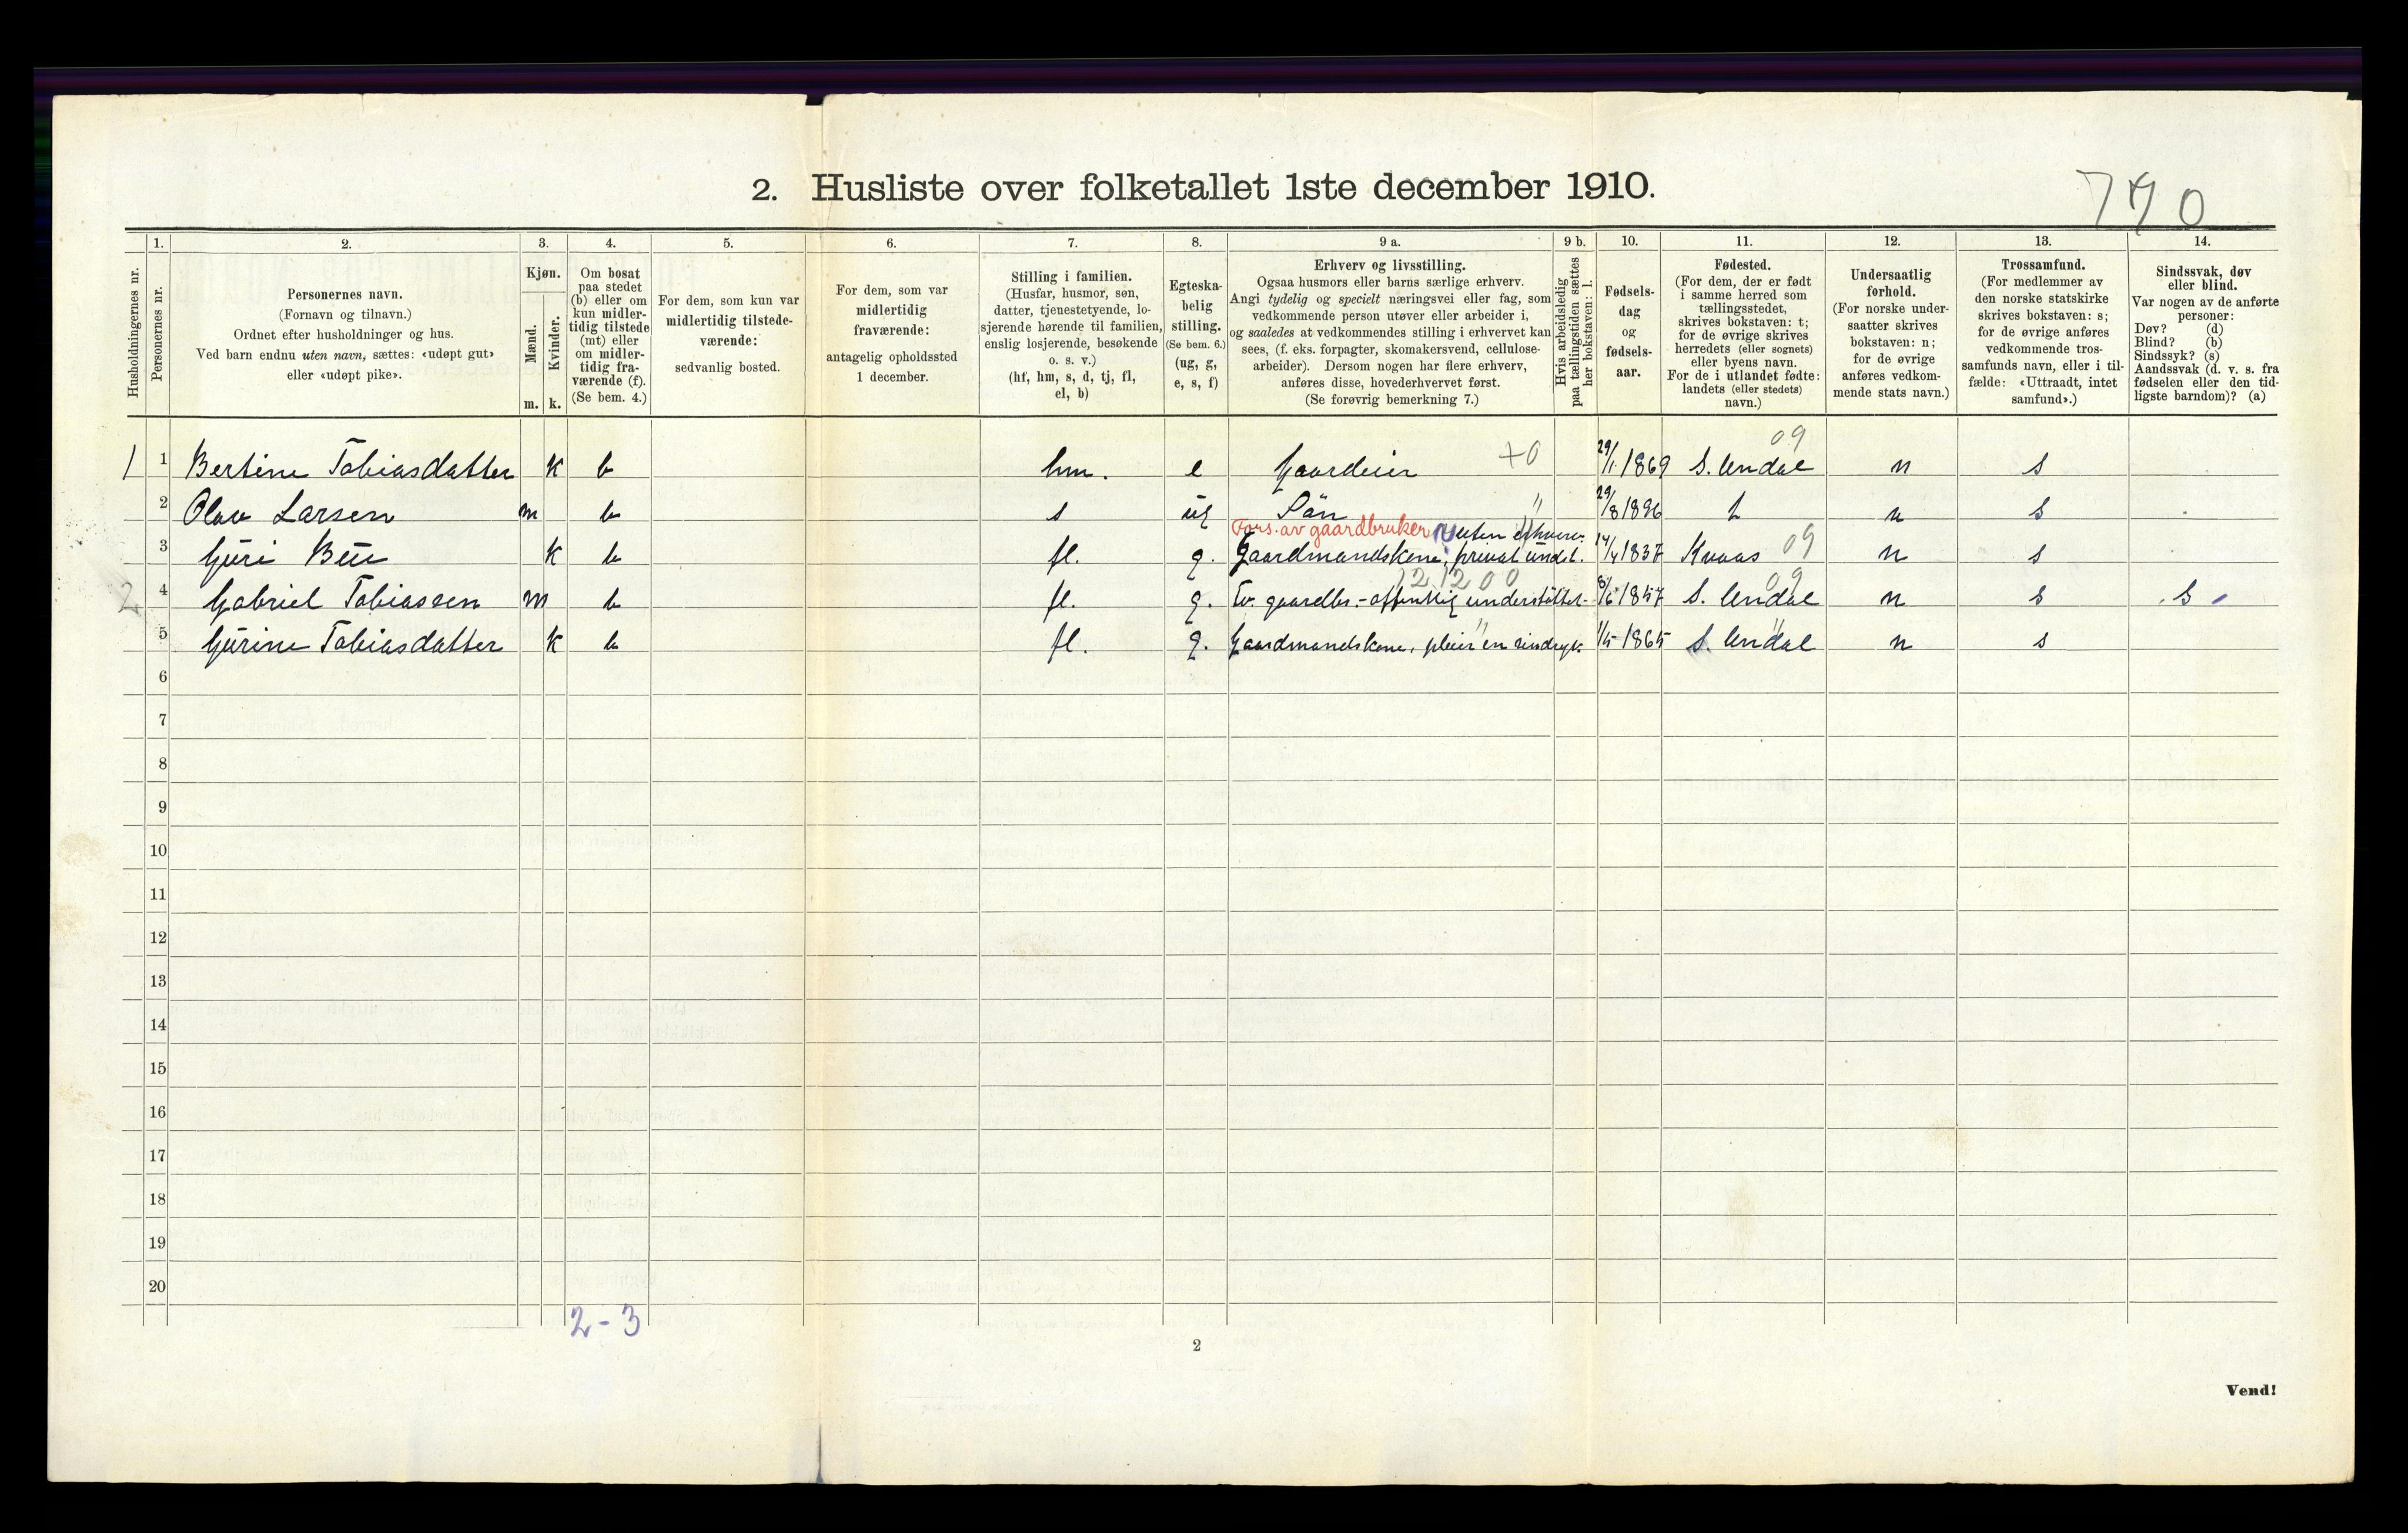 2. Husliste over folketallet 1ste december 1910.
770
Husholdningernes nr.
1.
Personernes nr.
2.
Personernes navn.
(Fornavn og tilnavn.)
Ordnet efter husholdninger og hus.
Ved barn endnu uten navn, sættes: «udøpt gut»
eller «udøpt pike».
3.
Kjøn.
Mænd.
Kvinder.
m. k.
4.
Om bosat
paa stedet
(b) eller om
kun midler-
tidig tilstede
(mt) eller
om midler-
tidig fra-
værende (f).
(Se bem. 4.)
5.
For dem, som kun var
midlertidig tilstede-
værende:
sedvanlig bosted.
6.
For dem, som var
midlertidig
fraværende:
antagelig opholdssted
1 december.
7.
Stilling i familien.
(Husfar, husmor, søn,
datter, tjenestetyende, lo-
sjerende hørende til familien,
enslig losjerende, besøkende
o. s. v.)
(hf, hm, s, d, tj, fl,
el, b)
8.
Egteska-
belig
stilling.
(Se bem. 6.)
(ug, g,
e, s, f)
9 a.
Erhverv og livsstilling.
Ogsaa husmors eller barns særlige erhverv.
Angi tydelig og specielt næringsvei eller fag, som
vedkommende person utøver eller arbeider i,
og saaledes at vedkommendes stilling i erhvervet kan
sees, (f. eks. forpagter, skomakersvend, cellulose-
arbeider). Dersom nogen har flere erhverv,
anføres disse, hovederhvervet først.
(Se forøvrig bemerkning 7.)
9 b.
Hvis arbeidsledig
paa tællingstiden sættes
her bokstaven: l.
10.
Fødsels-
dag
og
fødsels-
aar.
11.
Fødested.
(For dem, der er født
i samme herred som
tællingsstedet,
skrives bokstaven: t;
for de øvrige skrives
herredets (eller sognets)
eller byens navn.
For de i utlandet fødte:
landets (eller stedets)
navn.)
12.
Undersaatlig
forhold.
(For norske under-
saatter skrives
bokstaven: n;
for de øvrige
anføres vedkom-
mende stats navn.)
13.
Trossamfund.
(For medlemmer av
den norske statskirke
skrives bokstaven: s;
for de øvrige anføres
vedkommende tros-
samfunds navn, eller i til-
fælde: «Uttraadt, intet
samfund».)
14.
Sindssvak, døv
eller blind.
Var nogen av de anførte
personer:
Døv? (d)
Blind? (b)
Sindssyk? (s)
Aandssvak (d. v. s. fra
fødselen eller den tid-
ligste barndom)? (a)
09
1 1 Bertine Tobiasdatter K b hm. e Gaardeier +0 29/1 1869 S. Undal n s
2 Olav Larsen m b s ug Sön " 29/8 1896 t n s
Fors. av gaardbruker uten erhverv
3 Guri Bue K b fl. g. Gaardmandskone, privat underst. 14/4 1837 Kvaas 09 n s
121200 09
2 4 Gabriel Tobiassen m b fl. g. Ev. gaardbr. - offentlig understöttet- 8/6 1857 S. Undal n s s
5 Gurine Tobiasdatter K b fl. g. Gaardmandskone, pleier en sindsyk " 1/5 1865 S. Undal " n s
6
7
8
9
10
11
12
13
14
15
16
17
18
19
20
2-3
2
Vend!